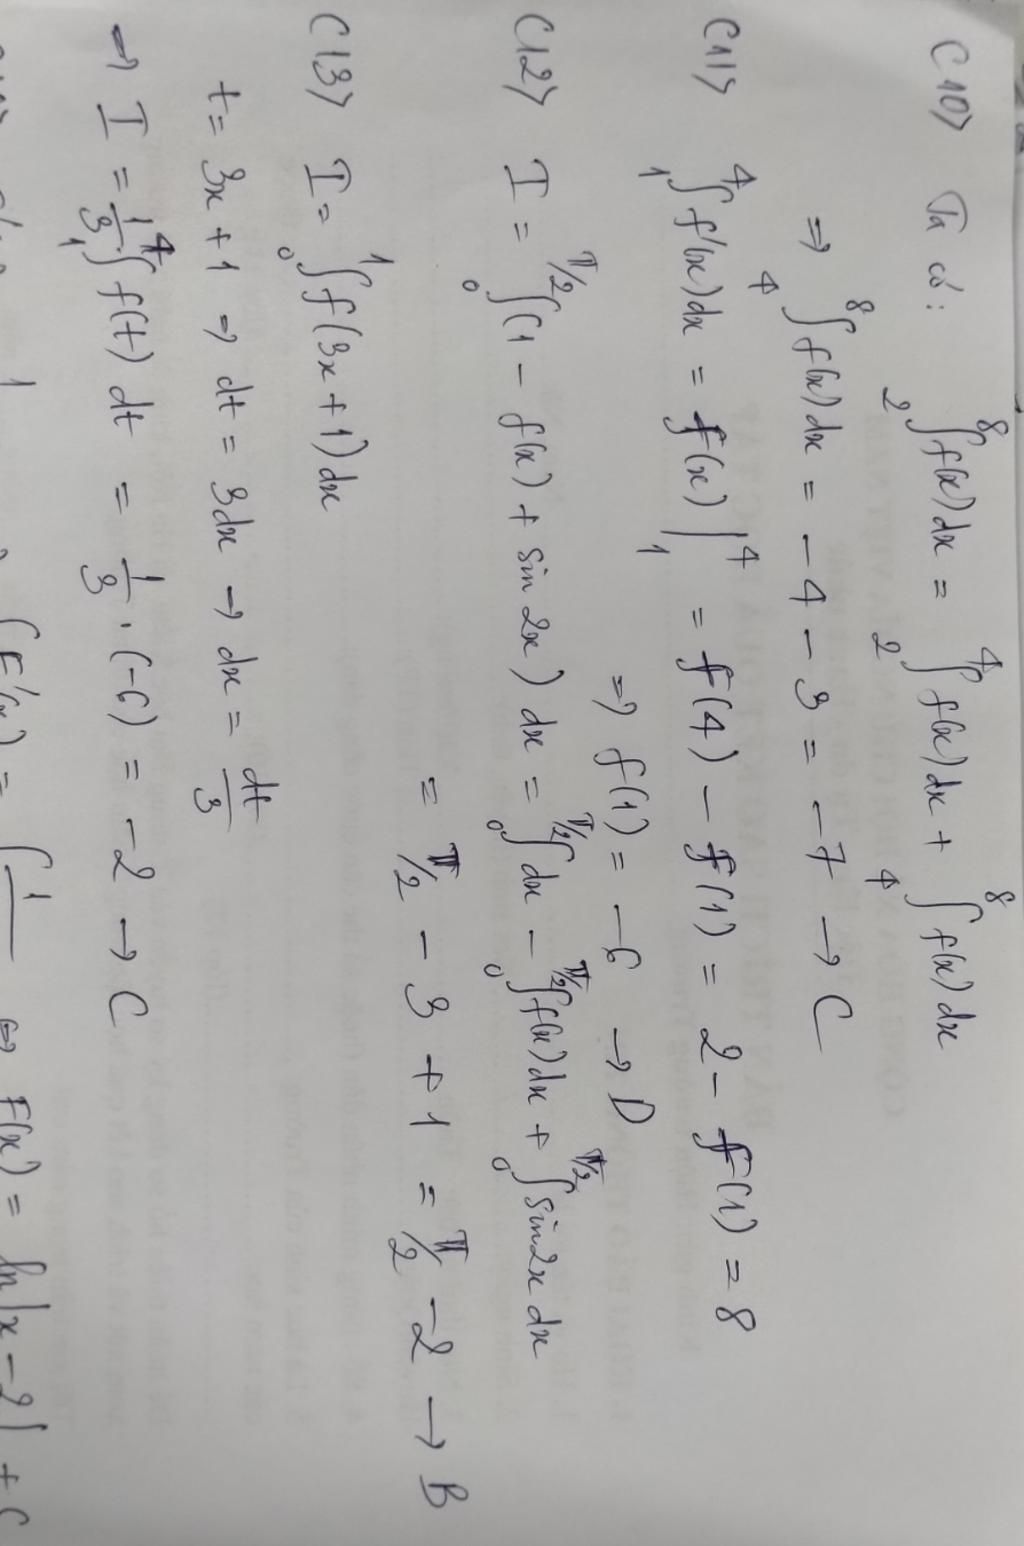 C10> Ta có: ₂∫⁸ f(x)dx = ₂∫⁴ f(x)dx + ₄∫⁸ f(x)dx
=> ₄∫⁸ f(x)dx = -4 - 3 = -7 → C
C11> ₁∫⁴ f'(x)dx = f(x)|₁⁴ = f(4) - f(1) = 2 - f(1) = 8
=> f(1) = -6 → D
C12> I = ₀∫^π/2 (1 - f(x) + sin 2x) dx = ₀∫^π/2 dx - ₀∫^π/2 f(x)dx + ₀∫^π/2 sin2x dx
= π/2 - 3 + 1 = π/2 - 2 → B
C13> I = ₀∫¹ f(3x+1)dx
t = 3x + 1 => dt = 3dx → dx = dt/3
=> I = 1/3 · ₁∫⁴ f(t) dt = 1/3 · (-6) = -2 → C
∫F'(x) = ∫ 1 ⇔ F(x) = ln|x-2| + C